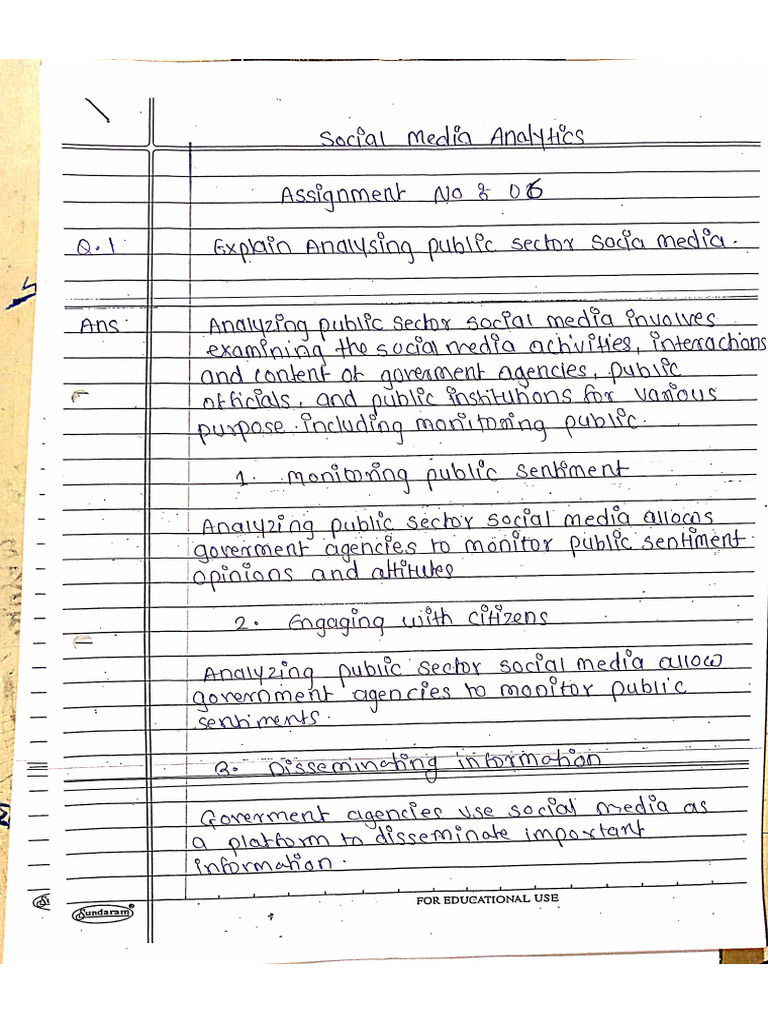 Social Media Analytics
Assignment No : 06
Q.1 Explain Analysing public sector socia media.
Ans: Analyzing public sector social media involves
examining the social media activities, interactions
and content of goverment agencies, public
officials, and public institutions for various
purpose. including monitoring public.
1. Monitoring public sentiment
Analyzing public sector social media allows
goverment agencies to monitor public sentiment
opinions and attitutes
2. Engaging with citizens
Analyzing public sector social media allow
government agencies to monitor public
sentiments.
3. Disseminating information
Goverment agencies use social media as
a platform to disseminate important
information.
Sundaram
FOR EDUCATIONAL USE